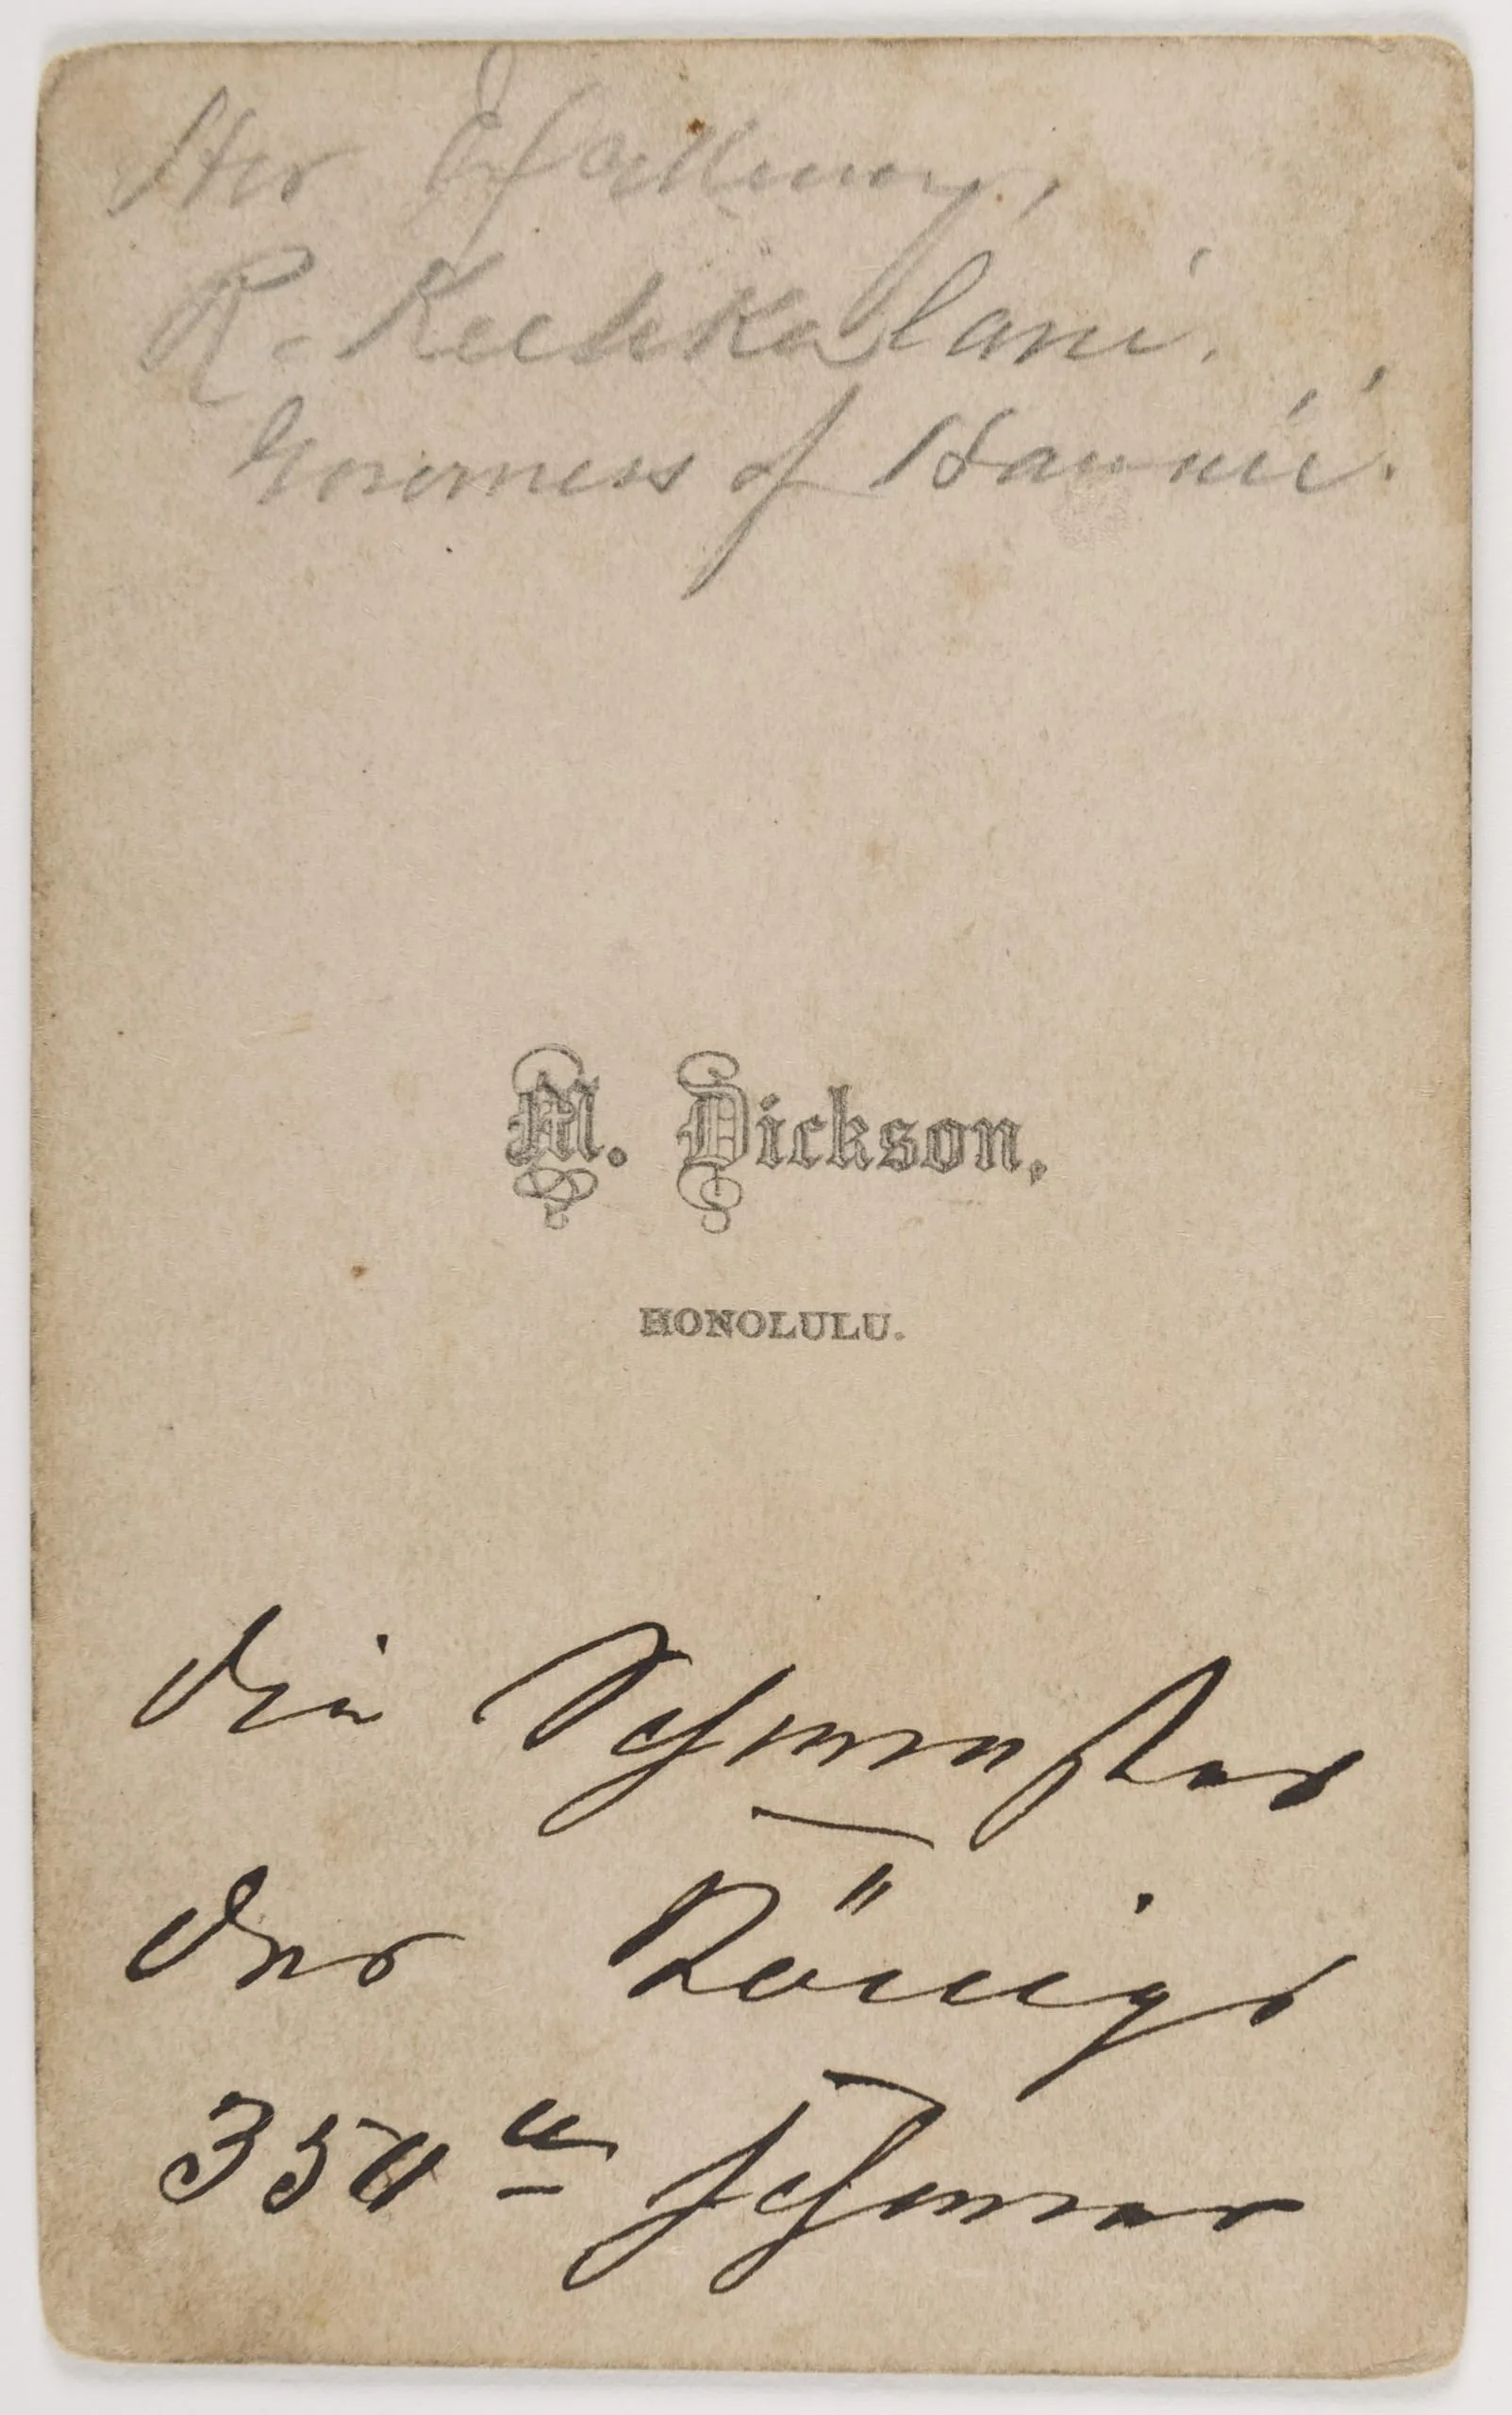 Her Excellency,
R. Keelikalani.
Governess of Hawaii.
M. Dickson,
HONOLULU.
die Schwester
des Königs
350 u schwer